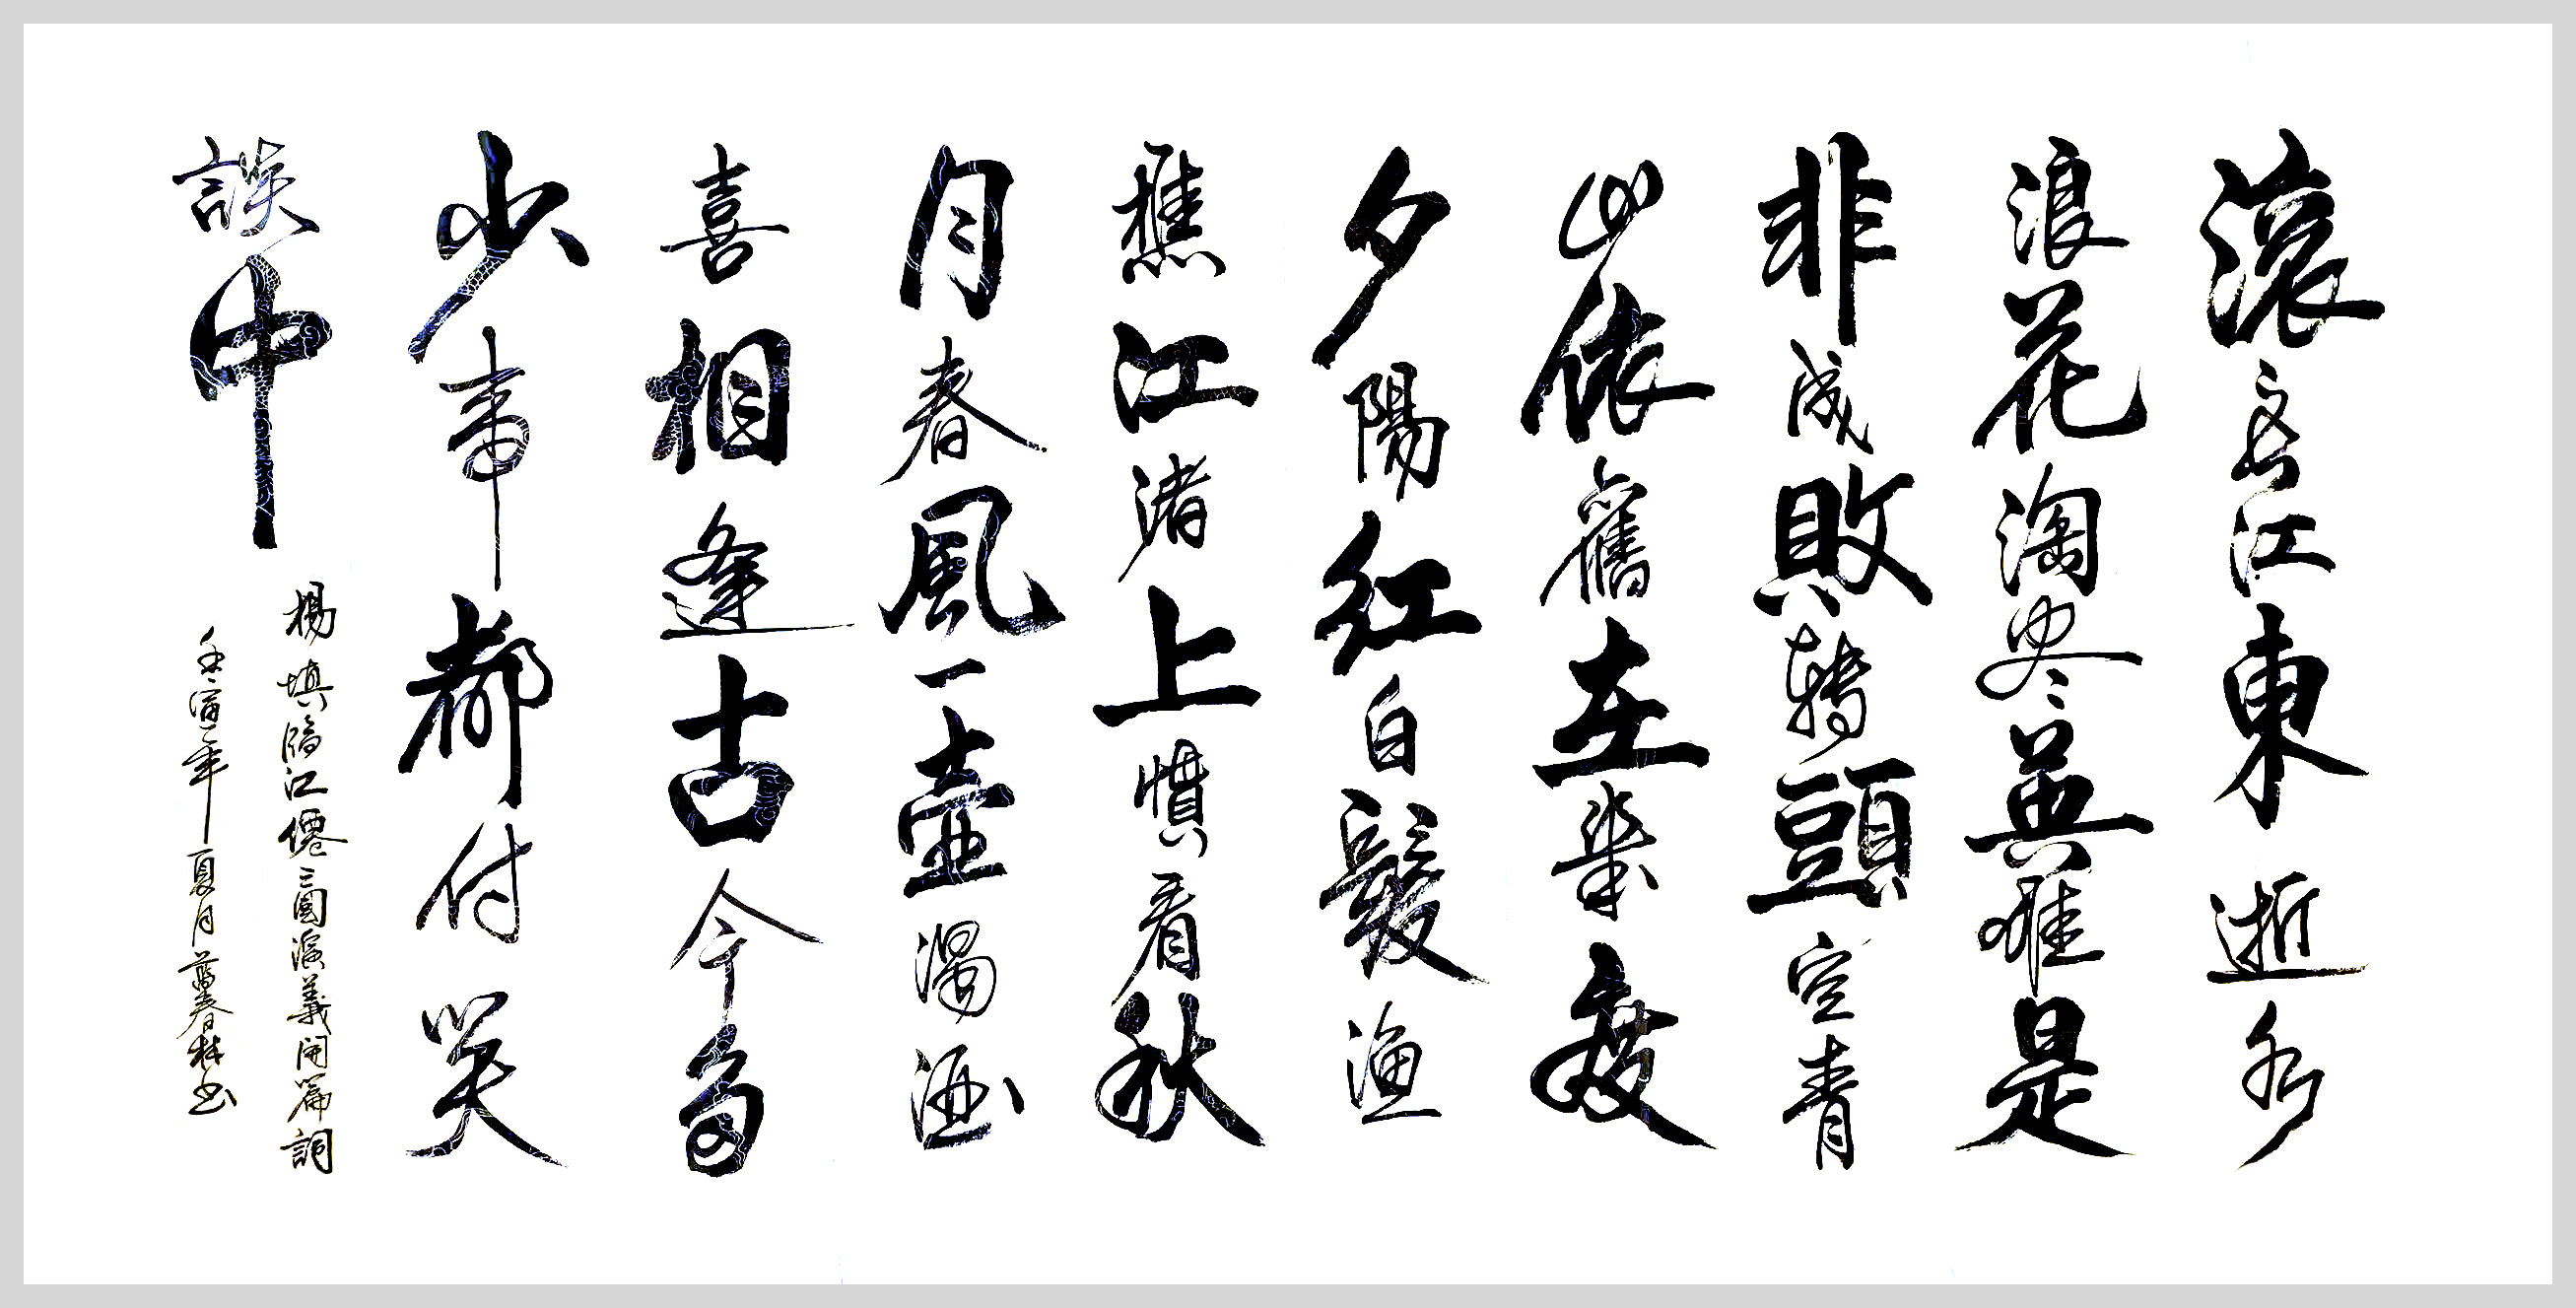 滚々長江東逝水
浪花淘尽英雄是
非成敗轉頭空青
山依舊在幾度
夕陽红白髮漁
樵江渚上慣看秋
月春風一壺濁酒
喜相逢古今多
少事都付笑
談中
楊填臨江僊三國演義開篇詞
壬寅年夏月春林书